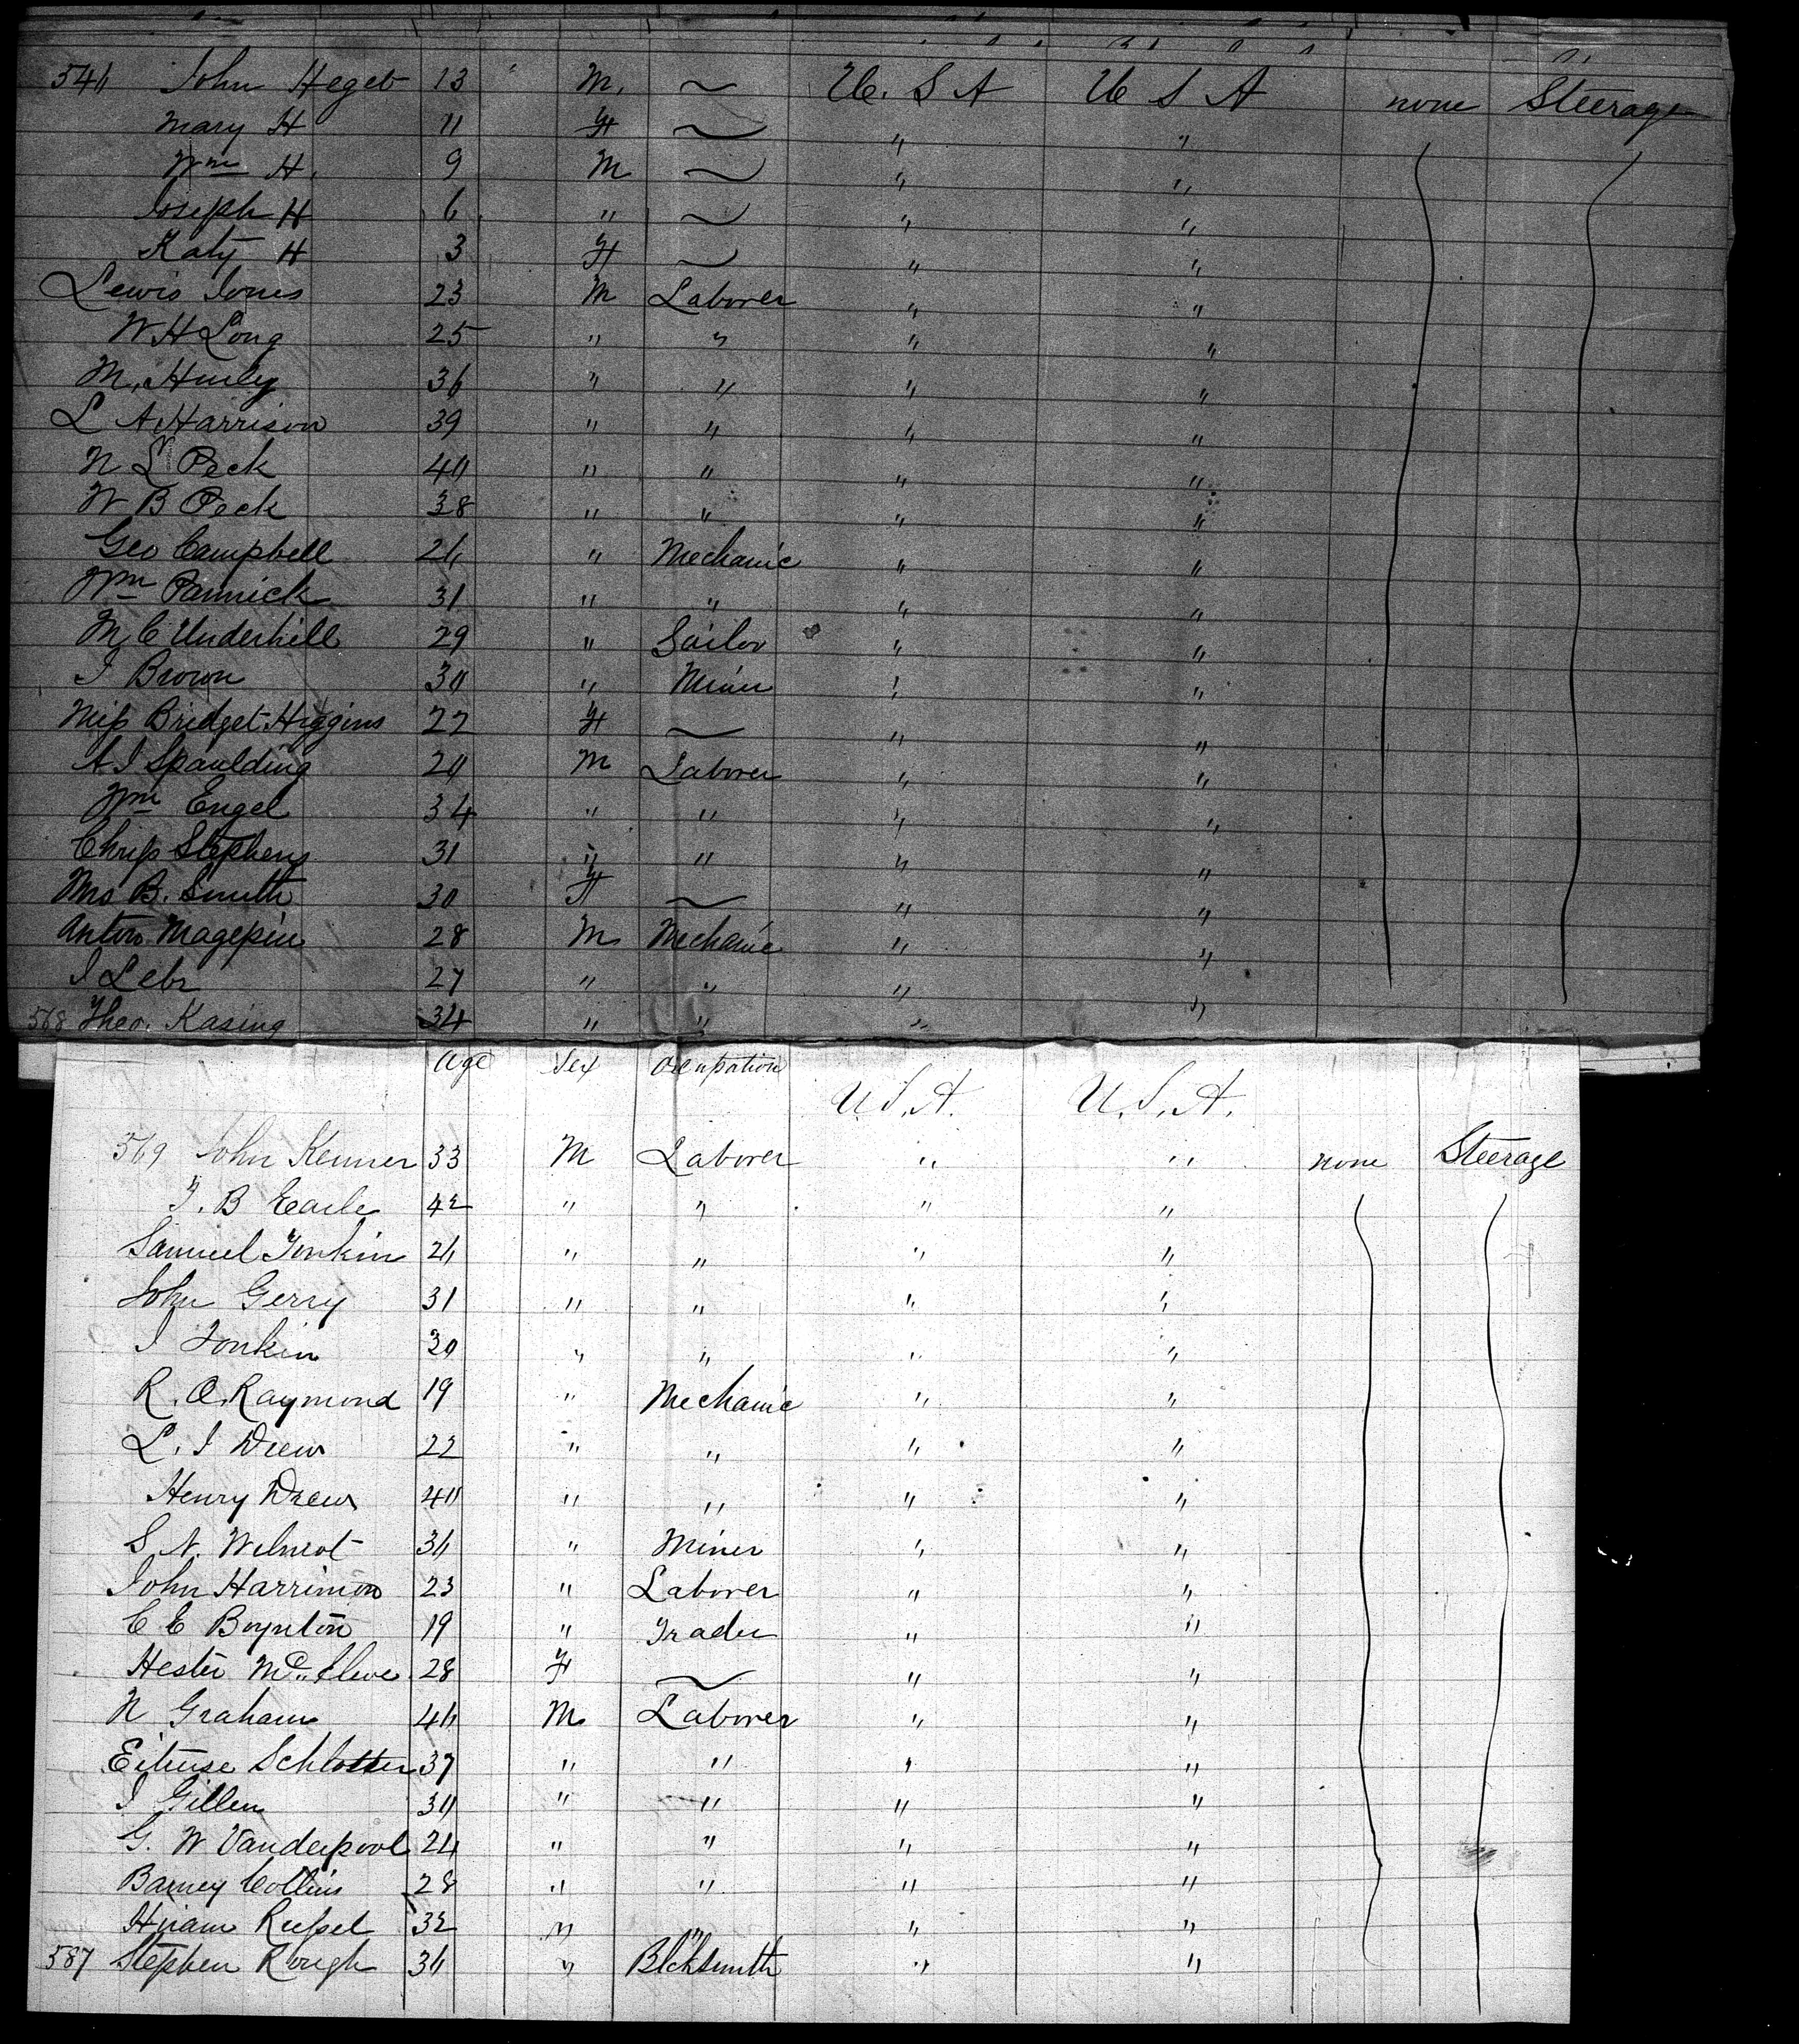 546 John Heget 13 M. ~ U. S A U S A none Steerage
Mary H 11 F ~ " "
Wm H. 9 M ~ " "
Joseph H 6 " ~ " "
Katy H 3 F ~ " "
Lewis Jones 23 M Laborer " "
W H Long 25 " " " "
M. Hurley 36 " " " "
L A Harrison 39 " " " "
N L Peck 40 " " " "
W B Peck 38 " " " "
Geo Campbell 26 " Mechanic " "
Wm Pannick 31 " " " "
M C Underhill 29 " Sailor " "
J Brown 30 " Miner " "
Miss Bridget Higgins 22 F ~ " "
A J Spaulding 20 M Laborer " "
Wm Engel 34 " " " "
Chriss Stephens 31 " " " "
Mrs B. Smith 30 F ~ " "
Anton 28 M Mechanic " "
J Lebr 27 " " " "
568 Theo. Kasing 34 " " " "
Age Sex Occupation
U.S.A. U.S.A.
569 John Kenner 33 M Laborer " " none Steerage
T. B Earle 42 " " " "
Samuel Tonkin 26 " " " "
John Gerry 31 " " " "
J Tonkin 30 " " " "
R. O. Raymond 19 " Mechanic " "
L. J Drew 22 " " " "
Henry Drew 40 " " " "
S N. Wilmot 36 " Miner " "
John Harrimon 23 " Laborer " "
C E Boynton 19 " Trader " "
Hester 28 F ~ " "
N Graham 46 M Laborer " "
Schlotter 37 " " " "
J Gillen 30 " " " "
G. W Vanderpool 24 " " " "
Barney Collins 28 " " " "
Hiram Russel 32 " " " "
587 Stephen Rough 36 " Blcksmith " "